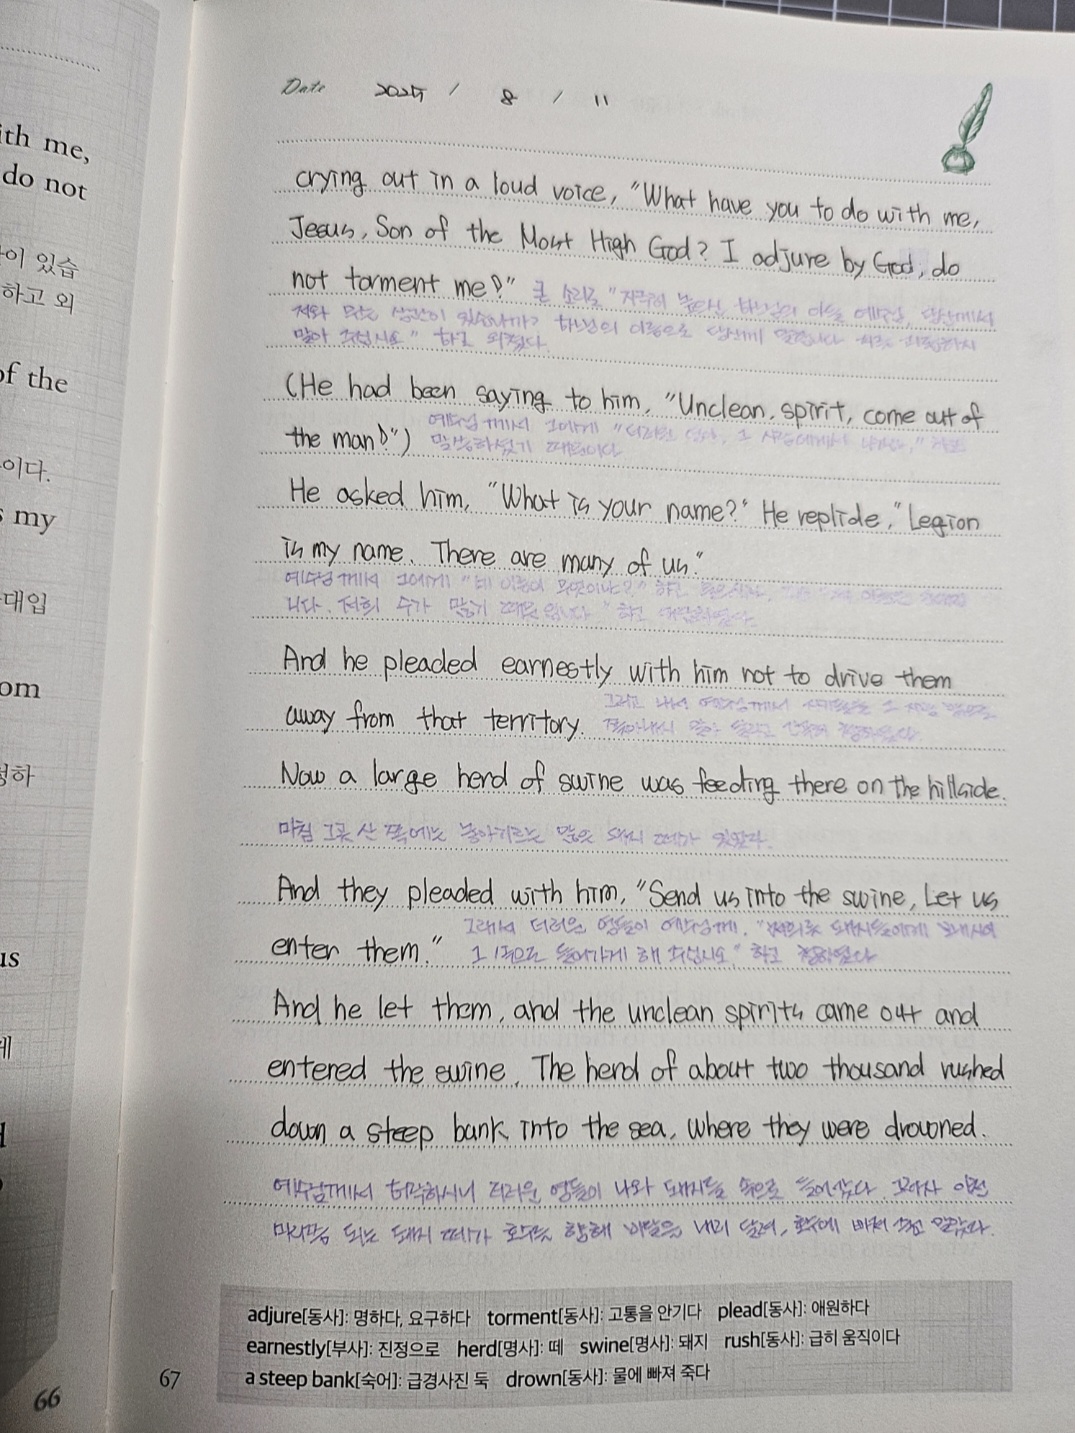 ith me,
do not
이 있습
하고 외
of the
이다.
s my
대입
om
청하
us
게
66
Date 2025 / 8 / 11
crying out in a loud voice, "What have you to do with me,
Jesus, Son of the Most High God? I adjure by God, do
not torment me!" 큰 소리로 "지극히 높으신 하느님의 아들 예수님, 당신께서
저와 무슨 상관이 있습니까? 하느님의 이름으로 당신께 말합니다 저를 괴롭히지
말아 주십시오." 하고 외쳤다.
(He had been saying to him, "Unclean, spirit, come out of
예수님께서 그에게 "더러운 영아, 그 사람에게서 나가라," 하고
the man!") 말씀하셨기 때문이다
He asked him, "What is your name?" He replide, "Legion
is my name. There are many of us."
예수님께서 그에게 "네 이름이 무엇이냐?" 하고 물으시자, 제 이름은
니다. 저희 수가 많기 때문입니다" 하고 대답하였다.
And he pleaded earnestly with him not to drive them
그리고 나서 예수님께서 자기들을 그 지방 밖으로
away from that territory. 쫓아내지 말아 달라고 간곡히 청하였다.
Now a large herd of swine was feeding there on the hillside.
마침 그곳 산 쪽에는 놓아기르는 많은 돼지 떼가 있었다.
And they pleaded with him, "Send us into the swine, Let us
그래서 더러운 영들이 예수님께, "저희를 돼지들에게 보내시어
enter them." 그 속으로 들어가게 해 주십시오." 하고 청하였다
And he let them, and the unclean spirits came out and
entered the swine. The herd of about two thousand rushed
down a steep bank into the sea, where they were drowned.
예수님께서 허락하시니 더러운 영들이 나와 돼지들 속으로 들어갔다. 그러자 이천
마리쯤 되는 돼지 떼가 호수를 향해 비탈을 내리 달려, 호수에 빠져 죽고 말았다.
adjure[동사]: 명하다, 요구하다 torment[동사]: 고통을 안기다 plead[동사]: 애원하다
earnestly[부사]: 진정으로 herd[명사]: 떼 swine[명사]: 돼지 rush[동사]: 급히 움직이다
67 a steep bank[숙어]: 급경사진 둑 drown[동사]: 물에 빠져 죽다